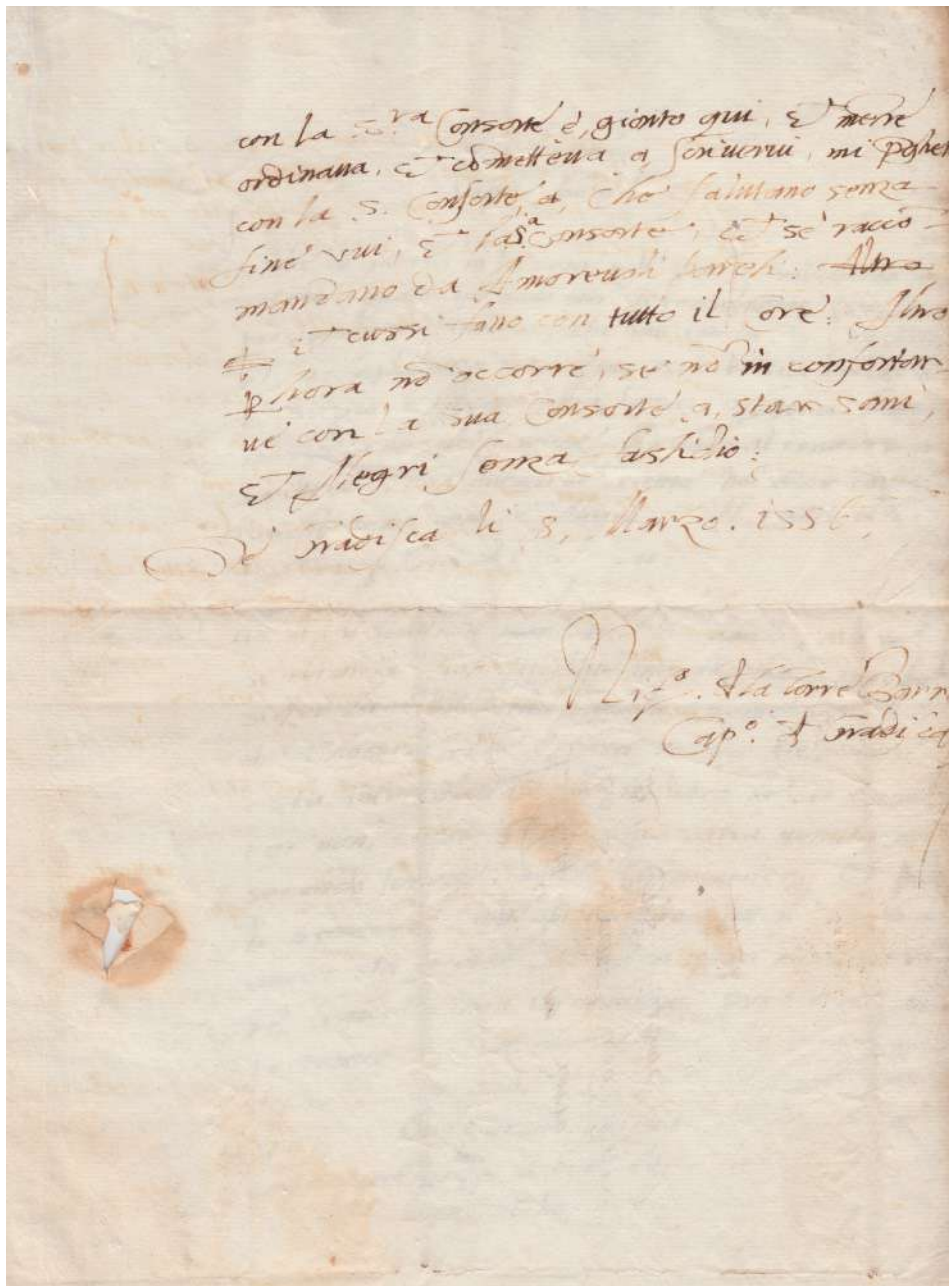 con la S.ra Consorte è, gionto qui, Et mentre
ordinava, et cometteva a, scrivervi, mi pghet
con la .S. Consorte, a, Che salutano senza
fine vui, Et la S.a Consorte, Et se racco-
mandano da Amorevoli
et cussi fano con tutto il core: Altro
p hora nõ occorre, se nõ in confortar
ve con la sua Consorte a, star sani,
Et Allegri senza fastidio:
Di Gradisca li 8, Marzo. 1556.
Nic.º dla Torre
Cap.º d Gradisca